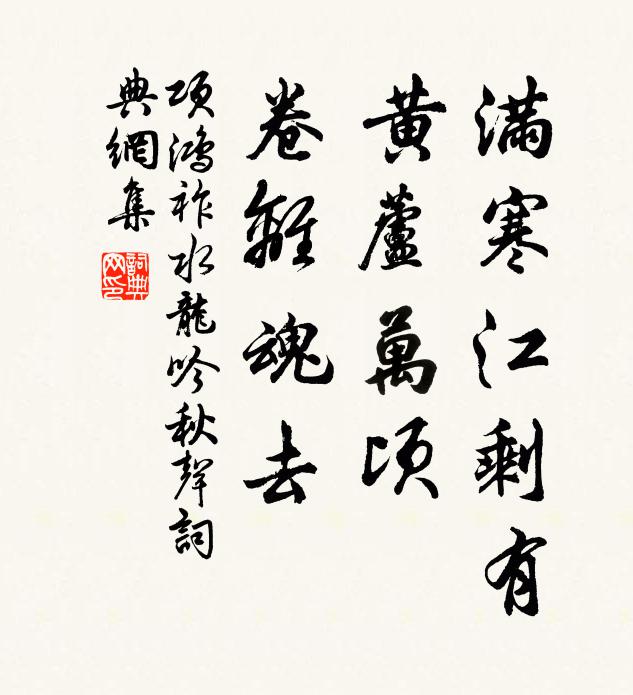 滿寒江剩有
黃蘆萬頃
卷離魂去
項鴻祚水龍吟秋聲詞
典網集
詞典網印